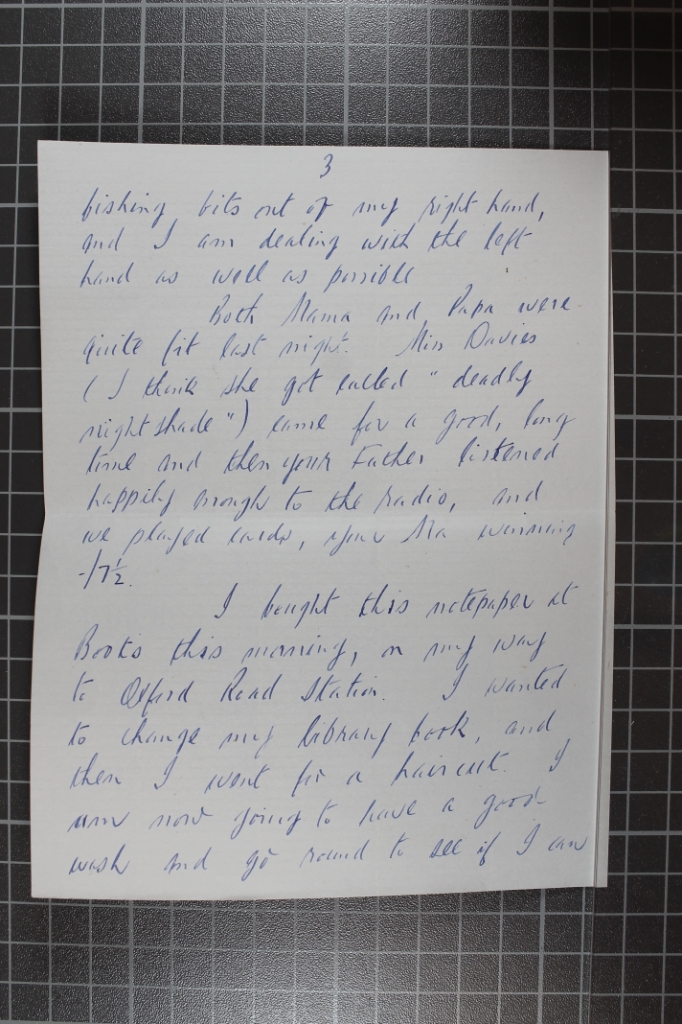 3
fishing bits out of my right hand,
and I am dealing with the left
hand as well as possible
Both Mama and Papa were
quite fit last night. Miss Davies
(I think she got called "deadly
nightshade") came for a good, long
time and then your Father listened
happily enough to the radio, and
we played cards, your Ma winning
-/7½.
I bought this notepaper at
Boots this morning, on my way
to Oxford Road Station. I wanted
to change my library book, and
then I went for a haircut. I
am now going to have a good
wash and go round to see if I can